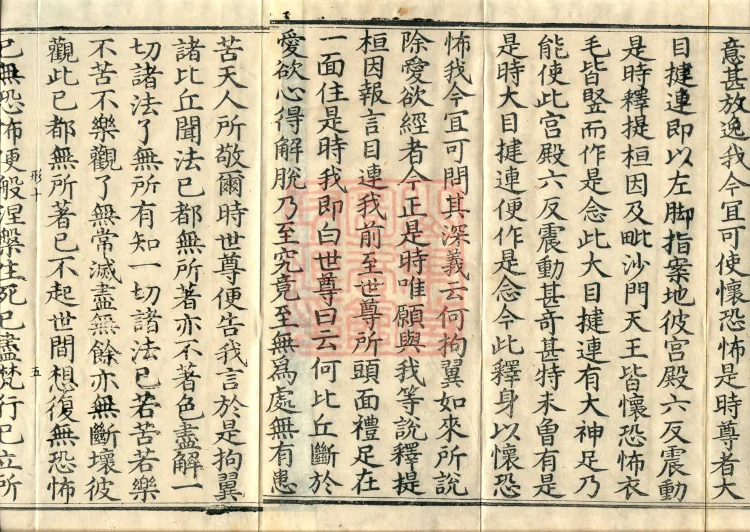 意甚放逸我今宜可使懷恐怖是時尊者大
目揵連即以左脚指案地彼宮殿六反震動
是時釋提桓因及毗沙門天王皆懷恐怖衣
毛皆豎而作是念此大目揵連有大神足乃
能使此宮殿六反震動甚奇甚特未曾有是
是時大目揵連便作是念今此釋身以懷恐
怖我今宜可問其深義云何拘翼如來所說
除愛欲經者今正是時唯願與我等說釋提
桓因報言目連我前至世尊所頭面禮足在
一面住是時我即白世尊曰云何比丘斷於
愛欲心得解脫乃至究竟至無為處無有患
苦天人所敬爾時世尊便告我言於是拘翼
諸比丘聞法已都無所著亦不著色盡解一
切諸法了無所有知一切諸法已若苦若樂
不苦不樂觀了無常滅盡無餘亦無斷壞彼
觀此已都無所著已不起世間想復無恐怖
形十 五
已無恐怖便般涅槃生死已盡梵行已立所